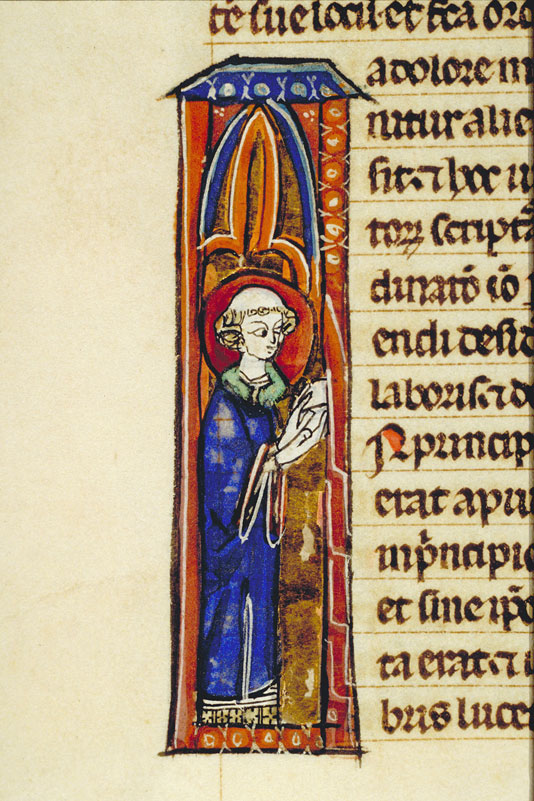 tẽ sue locũ et fc̃a oro
a dolore m
nitur alie
sit· ⁊ hoc u
torꝝ script̃
dinatõ iõ p
endi desid
laboris· ⁊ de
N principi
erat apu
inp̃ncipio
et sine ip̃o
ta erat ⁊ u
bris luce